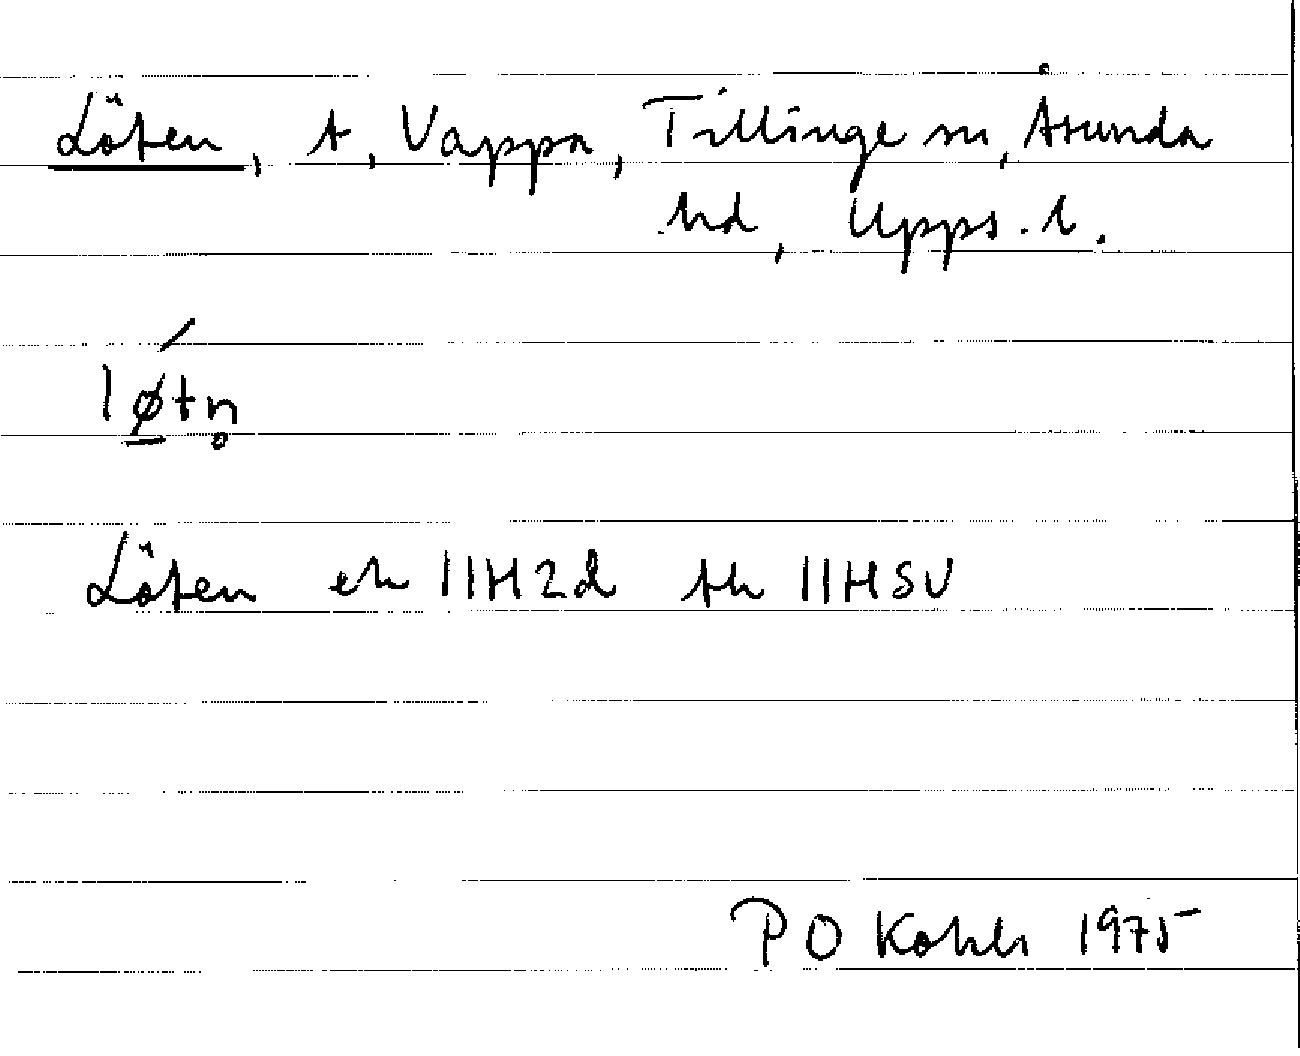 Löten, t, Vappa, Tillinge sn, Åsunda
hd, Upps. l.
lǿ̲tn̥
Löten ek 11H2d tk 11HSV
P O Kohls 1975